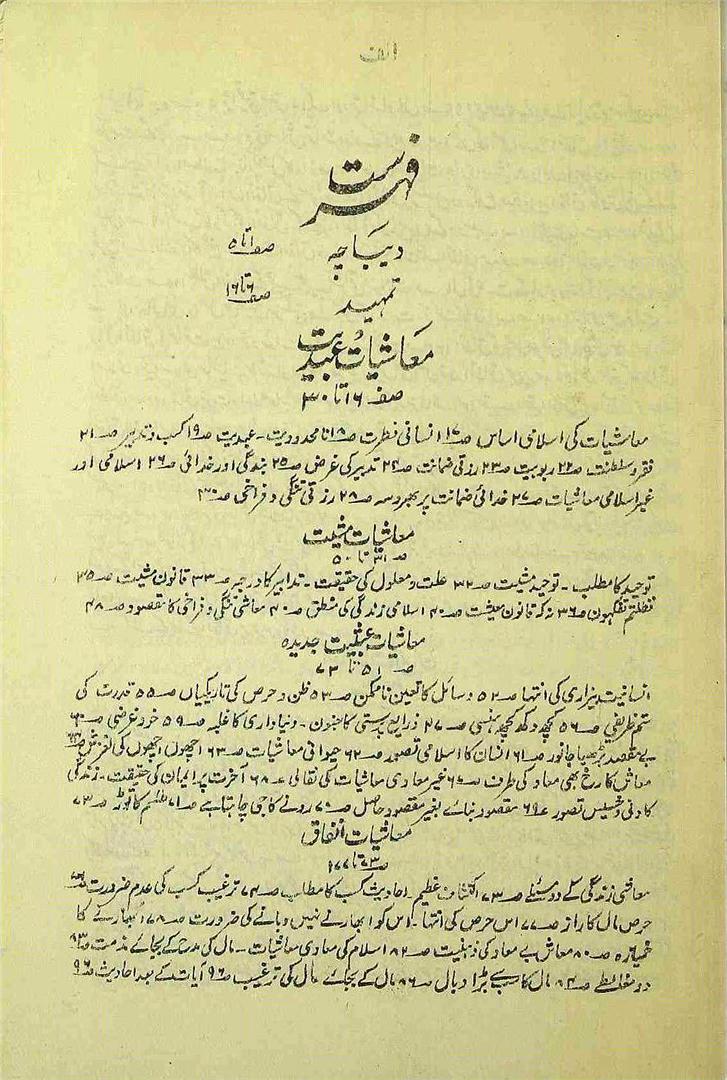 الف
فہرست
دیباچہ صفہ ۱ تا ۵
تمہید صفہ ۶ تا ۱۶
معاشیات عبدیت
صفہ ۱۶ تا ۳۰
معاشیات کی اسلامی اساس صہ۱۷ انسانی فطرت صہ۱۸ نامحدودیت - عبدیت صہ۱۹ کسب و تدبیر صہ۲۱
فقر و سلطنت صہ۲۲ ربوبیت صہ۲۳ رزقی ضمانت صہ۲۴ تدبیر کی غرض صہ۲۵ بندگی اور خدائی صہ۲۶ اسلامی اور
غیر اسلامی معاشیات صہ۲۷ خدائی ضمانت پر بھروسہ صہ۲۸ رزقی تنگی و فراخی صہ۳۰
معاشیات مشیت
صہ ۳۱ تا ۵۰
توحید کا مطلب - توحید مشیت صہ۳۲ علت و معلول کی حقیقت - تدابیر کا درجہ صہ۳۳ قانون مشیت صہ۳۵
فظلتم تفکہون صہ۳۶ نہ کہ قانون معیشت صہ۴۰ اسلامی زندگی کی منطق صہ۴۰ معاشی تنگی و فراخی کا مقصود صہ۴۸
معاشیات جدیدہ
صہ ۵۱ تا ۷۳
انسانیت بیزاری کی انتہا صہ۵۲ وسائل کا تعین ناممکن صہ۵۳ ظن و حرص کی تاریکیاں صہ۵۵ قدرت کی
ستم ظریفی صہ۵۶ کچھ دکھ کچھ ہنسی صہ۲۷ ذرائع پرستی کا جنون - دنیاداری کا غلبہ صہ۵۹ خود غرضی صہ۶۰
بے مقصد بڑھیا جانور صہ۶۱ انسان کا اسلامی تصور صہ۶۲ حیوانی معاشیات صہ۶۳ اچھوں اچھوں کی لغزش
معاش کا رخ بھی معاد کی طرف صہ۶۵ غیر معادی معاشیات کی نقالی صہ۶۸ آخرت پر ایمان کی حقیقت - زندگی
کا دنی و خسیس تصور صہ۶۹ مقصود بنائے بغیر مقصود حاصل صہ۷۰ رونے کا جی چاہتا ہے صہ۷۱ طلسم کا توڑ صہ۷۳
معاشیات انفاق
صہ۷۳ تا ۱۷۷
معاشی زندگی کے دو مسئلے صہ۷۳ اکتشاف عظیم - احادیث کسب کا مطلب صہ۷۴ ترغیب کسب کی عدم ضرورت
حرص مال کا راز صہ۷۷ اس حرص کی انتہا - اس کو ابھارنے نہیں دبانے کی ضرورت صہ۷۸ ابھارنے کا
خمیازہ صہ۸۰ معاش بے معاد کی ذہنیت صہ۸۲ اسلام کی معادی معاشیات - مال کی مدح کے بجائے مذمت صہ۸۳
دو مغالطے صہ۸۴ مال کا سب سے بڑا وبال صہ۸۶ مال کے بجائے مآل کی ترغیب صہ۹۶ آیات کے بعد احادیث صہ۹۶